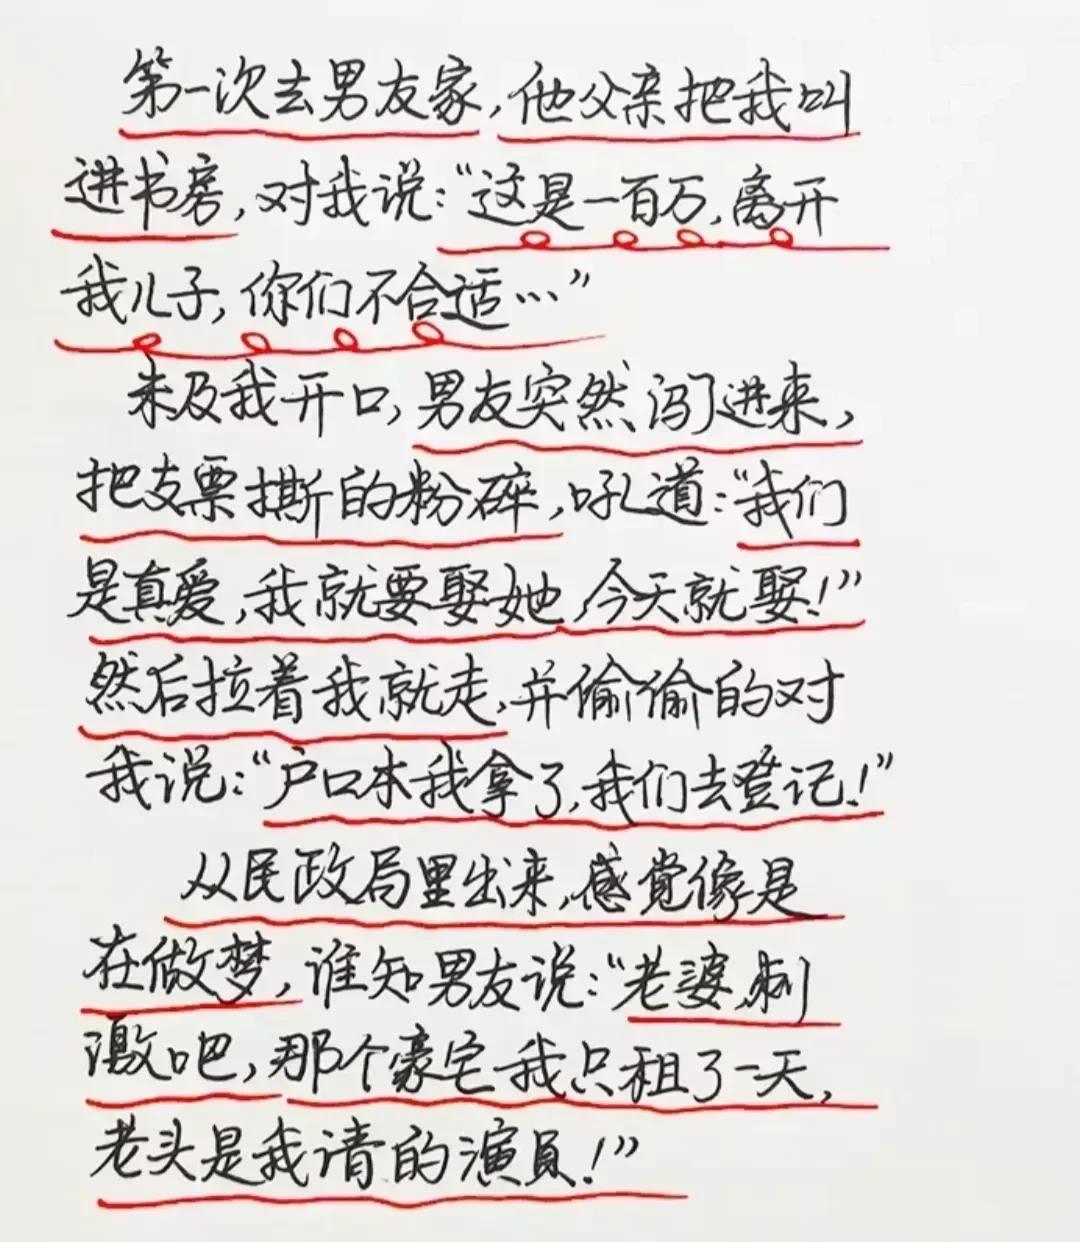 第一次去男友家,他父亲把我叫
进书房,对我说:“这是一百万,离开
我儿子,你们不合适…”
未及我开口,男友突然闯进来,
把支票撕的粉碎,吼道:“我们
是真爱,我就要娶她,今天就娶!”
然后拉着我就走,并偷偷的对
我说:“户口本我拿了,我们去登记!”
从民政局里出来,感觉像是
在做梦,谁知男友说:“老婆,刺
激吧,那个豪宅我只租了一天,
老头是我请的演员!”